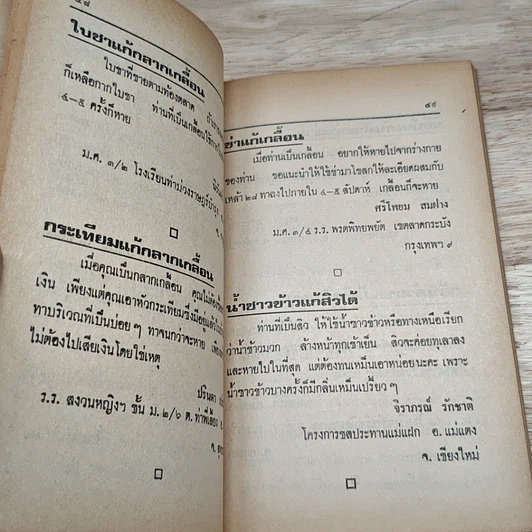 ๔๘
ใบชาแก้กลากเกลื้อน
ใบชาที่ขายตามท้องตลาด
ก็เหลือกากใบชา ท่านที่เป็นเกลื้อนใช้
๔-๕ ครั้งก็หาย
ม.ศ. ๓/๒ โรงเรียนท่าม่วงราษฎร์บำรุง
กระเทียมแก้กลากเกลื้อน
เมื่อคุณเป็นกลากเกลื้อน คุณไม่ต้อง
เงิน เพียงแต่คุณเอาหัวกระเทียมซึ่งมีอยู่แล้ว
ทาบริเวณที่เป็นบ่อยๆ ทาจนกว่าจะหาย
ไม่ต้องไปเสียเงินโดยใช่เหตุ
ปรินดา
ร.ร. สงวนหญิงฯ ชั้น ม. ๒/๖ ต. ท่าพี่เลี้ยง
๔๙
ข่าแก้เกลื้อน
เมื่อท่านเป็นเกลื้อน อยากให้หายไปจากร่างกาย
ของท่าน ขอแนะนำให้ใช้ข่ามาโขลกให้ละเอียดผสมกับ
เหล้า ๒๘ ทาลงไปภายใน ๔-๕ สัปดาห์ เกลื้อนก็จะหาย
ศรีโพยม สมฝาง
ม.ศ. ๓/๔ ร.ร. พรตพิทยพยัต เขตลาดกระบัง
กรุงเทพฯ ๙
น้ำซาวข้าวแก้สิวได้
ท่านที่เป็นสิว ให้ใช้น้ำซาวข้าวหรือทางเหนือเรียก
ว่าน้ำข้าวมวก ล้างหน้าทุกเช้าเย็น สิวจะค่อยทุเลาลง
และหายไปในที่สุด แต่ต้องทนเหม็นเอาหน่อยนะคะ เพราะ
น้ำซาวข้าวบางครั้งก็มีกลิ่นเหม็นเปรี้ยวๆ
จิราภรณ์ รักชาติ
โครงการชลประทานแม่แฝก อ.แม่แตง
จ. เชียงใหม่